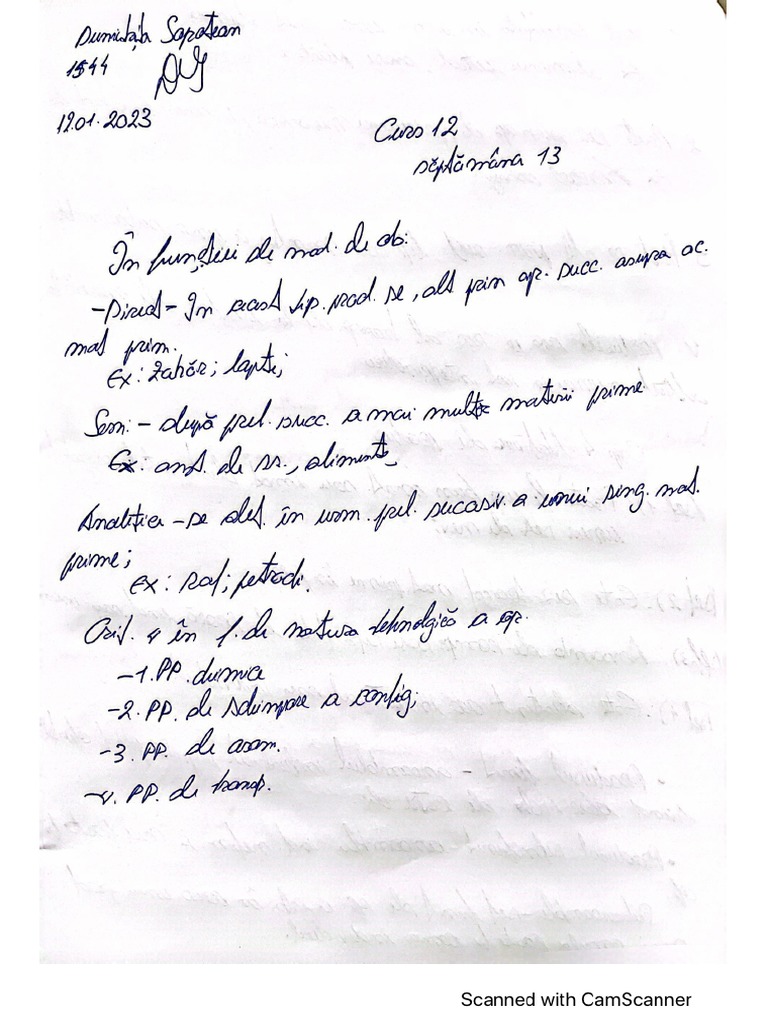 Dumitrița Sapotean
1544
12.01.2023
Curs 12
săptămâna 13
În funcției de mod. de ob:
-Direct- În acest tip. prod. se, obt prin op. succ. asupra ac.
mat prim.
Ex: Zahăr; lapte;
Sem: - după prel. succ. a mai multe materii prime
Ex: ant. de , aliment.
Analitica - se obt. în urm. prel. sucasiv. a unui sing. mat.
prime;
Ex: petrodi.
Crit. 4 în f. de natura tehnolgică a op.
-1. PP.
-2. PP. de Schimpare a config;
-3. PP. de asam.
-4. PP. de transp.
Scanned with CamScanner